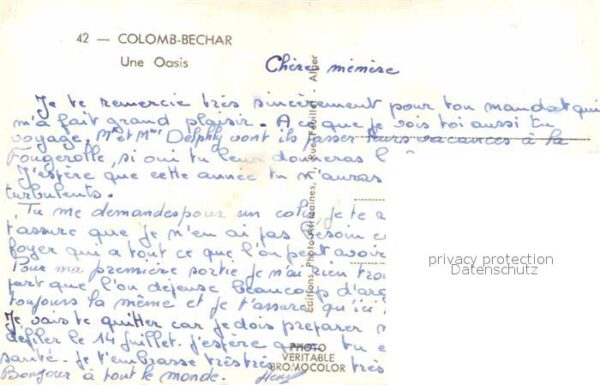 42 — COLOMB-BECHAR
Une Oasis
Chère mémèse
Je te remercie très sincèrement pour ton mandat qui
m'a fait grand plaisir. A ce que je vois toi aussi tu
voyage, Mr et Mme vont ils passer leurs vacances à la
Fougerolle, si oui tu leur donneras l
J'espère que cette année tu n'auras
turbulents.
Tu me demandes pour un colis, je te a
t'assure que je n'en ai pas besoin e
foyer qui a tout ce que l'on peut avoir
Pour ma première sortie je n'ai rien trou
part que l'on dépense beaucoup d'arg
toujours la même et je t'assure qu'ici
Je vais te quitter car je dois préparer
défiler le 14 juillet. j'espère que tu e
santé. Je t'embrasse très très très
Bonjour à tout le monde.
Editions Photo-Africaines, Rue Feuillet - Alger
PHOTO
VERITABLE
BROMOCOLOR
privacy protection
Datenschutz